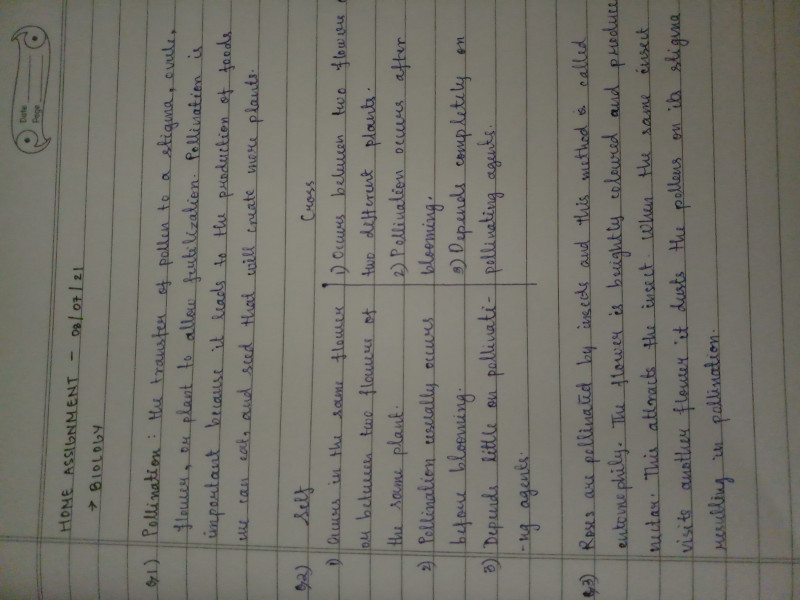 Date
Page
HOME ASSIGNMENT - 08/07/21
→ BIOLOGY
Q1) Pollination : the transfer of pollen to a stigma, ovule,
flower, or plant to allow fertilization. Pollination is
important because it leads to the production of foods
we can eat, and seed that will create more plants.
Q2) Self
1) Occurs in the same flower
or between two flowers of
the same plant.
2) Pollination usually occurs
before blooming.
3) Depends little on pollinati-
-ng agents.
Cross
1) Occurs between two flowers
two different plants.
2) Pollination occurs after
blooming.
3) Depends completely on
pollinating agents.
Q3) Roses are pollinated by insects and this method is called
entomophily. The flower is brightly coloured and produce
nectar. This attracts the insect. When the same insect
visits another flower it dusts the pollens on its stigma
resulting in pollination.